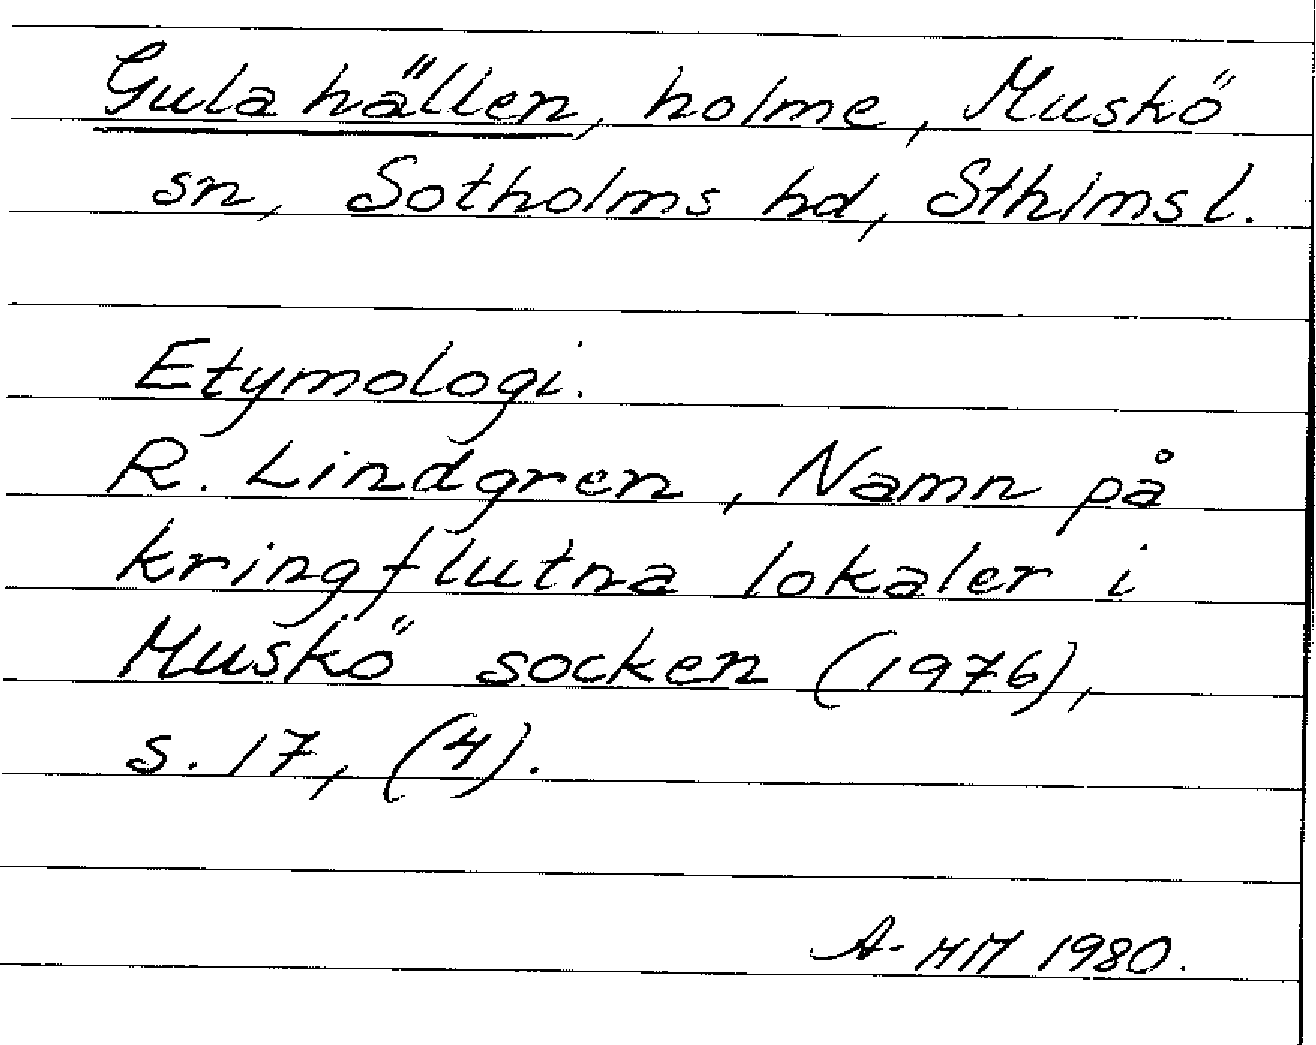 Gula hällen, holme, Muskö
sn, Sotholms hd, Sthlms l.
Etymologi.
R. Lindgren, Namn på
kringflutna lokaler i
Muskö socken (1976),
s. 17, (4).
A-MM 1980.